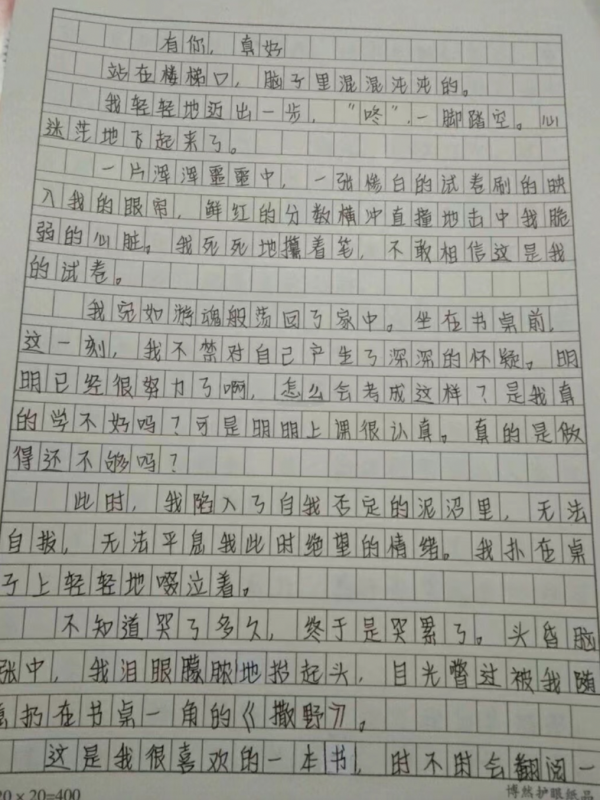 有你，真好
站在楼梯口，脑子里混混沌沌的。
我轻轻地迈出一步，“咚”，一脚踏空。心
迷茫地飞起来了。
一片浑浑噩噩中，一张惨白的试卷刷的映
入我的眼帘，鲜红的分数横冲直撞地击中我脆
弱的心脏。我死死地攥着笔，不敢相信这是我
的试卷。
我宛如游魂般荡回了家中。坐在书桌前，
这一刻，我不禁对自己产生了深深的怀疑。明
明已经很努力了啊，怎么会考成这样？是我真
的学不好吗？可是明明上课很认真。真的是做
得还不够吗？
此时，我陷入了自我否定的泥沼里，无法
自拔，无法平息我此时绝望的情绪。我扑在桌
子上轻轻地啜泣着。
不知道哭了多久，终于是哭累了。头昏脑
张中，我泪眼朦胧地抬起头，目光瞥过被我随
意扔在书桌一角的《撒野》。
这是我很喜欢的一本书，时不时会翻阅一
20×20=400 博然护眼纸品